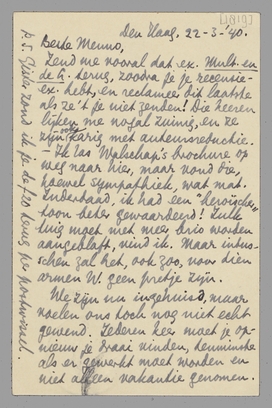 [1819]
Den Haag, 22-3-'40.
Beste Menno,
Zend me vooral dat ex. Mult. en
de G. terug, zoodra je je recensie-
ex. hebt, en reclameer dit laatste
als ze 't je niet zenden! Die heeren
lijken me nogal zuinig, en ze
zijn ook karig met auteursreductie.
Ik las Walschap's brochure op
weg naar hier, maar vond die,
hoewel sympathiek, wat mat.
Inderdaad, ik had een "heroischer"
toon beter gewaardeerd! Zulk
tuig moet met meer brio worden
aangeblaft, vind ik. Maar intus-
schen zal het, ook zoo, voor dien
armen W. geen pretje zijn.
We zijn nu ingehuisd, maar
voelen ons toch nog niet echt
gewend. Iedere keer moet je op-
nieuw je draai vinden, tenminste
als er gewerkt moet worden en
niet alleen vakantie genomen.
P.S. Gister zond ik je de f 60 terug per postwissel.